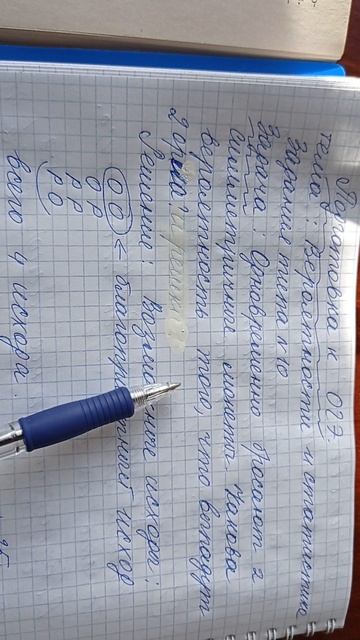 Подготовка к ОГЭ.
тема: Вероятность и статистика
Задание типа № 10
Задача: Одновременно бросают 2
симметричные монеты. Какова
вероятность того, что выпадут
2 орла
Решение: исходы:
ОО ← благопр исход
ОР
РР
РО
всего 4 исхода.